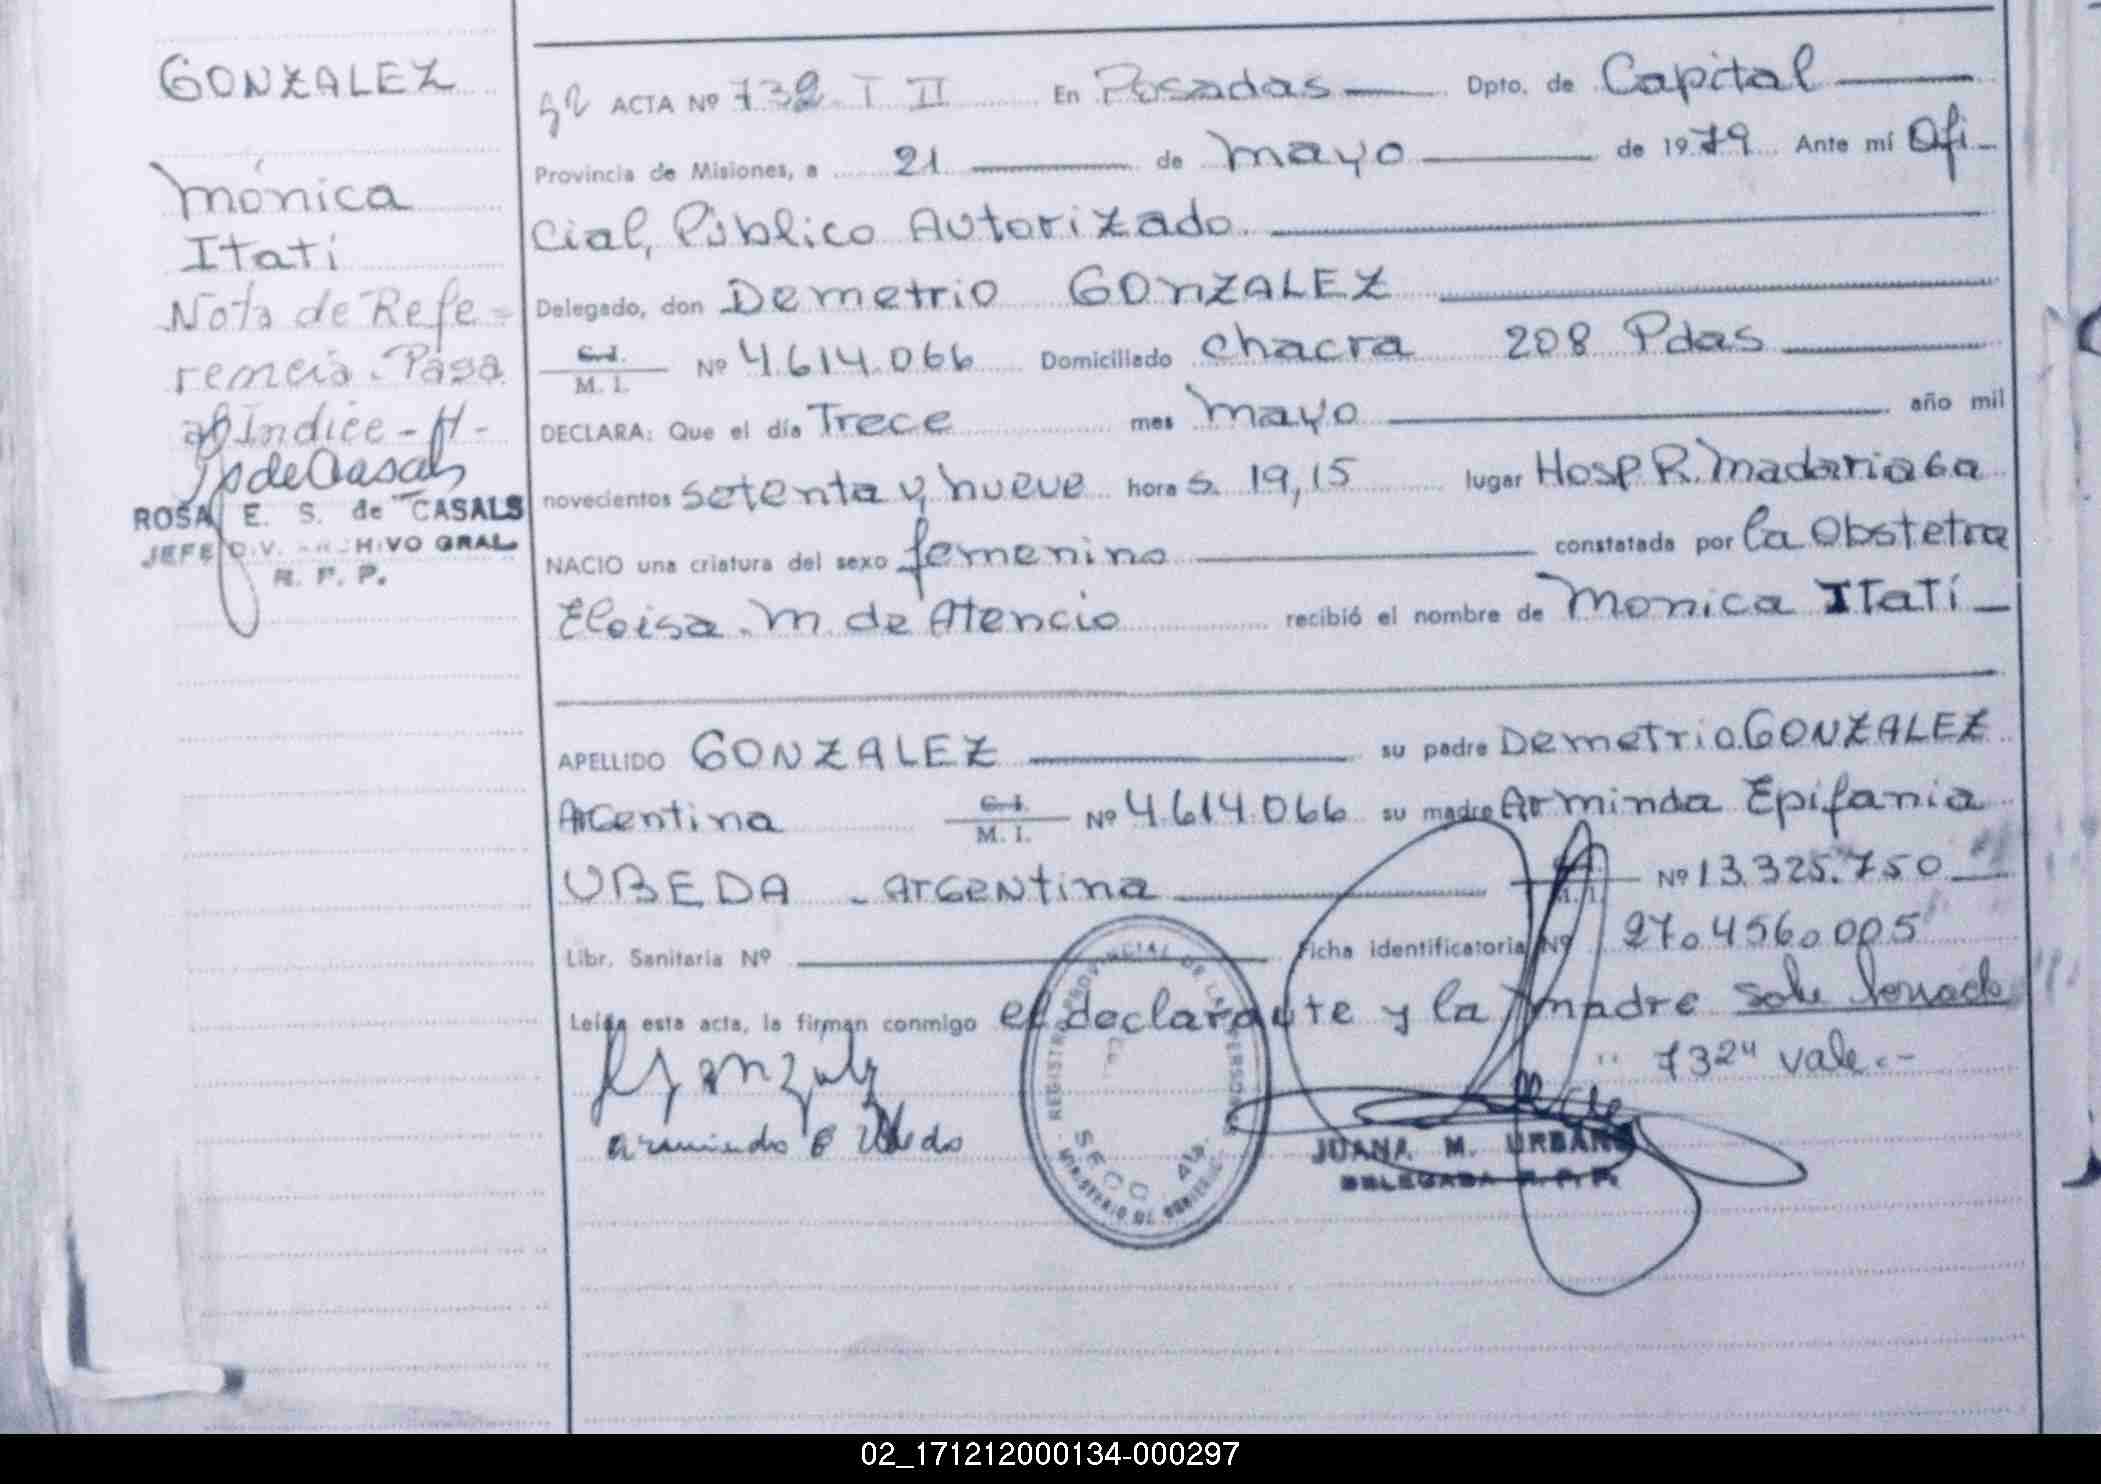 GONZALEZ
Mónica
Itatí
Nota de Refe-
rencia. Pasa
al Indice - H -
ROSA E. S. de CASALS
JEFE DIV. ARCHIVO GRAL
R. P. P.
ACTA Nº 732 T II En Posadas Dpto. de Capital
Provincia de Misiones, a 21 de mayo de 1979 Ante mí Ofi-
cial, Público Autorizado.
Delegado, don Demetrio GONZALEZ
C.I.
M. I. Nº 4.614.066 Domiciliado Chacra 208 Pdas
DECLARA: Que el día Trece mes mayo año mil
novecientos setenta y nueve horas. 19,15 lugar Hosp R. Madariaga
NACIO una criatura del sexo femenino constatada por la Obstetra
Eloisa. M de Atencio recibió el nombre de Monica ITatí
APELLIDO GONZALEZ su padre Demetrio GONZALEZ
Argentina C.I.
M. I. Nº 4.614.066 su madre Arminda Epifania
UBEDA - Argentina M. I. Nº 13.325.750
Libr. Sanitaria Nº Ficha identificatoria Nº 270.4560.005
Leída esta acta, la firman conmigo el declarante y la madre sobre borrado
"732" vale.-
REGISTRO PROVINCIAL DE LAS PERSONAS
SECC
MINISTERIO DE GOBIERNO
JUANA M. URBANO
DELEGADA R. P. P.
02_171212000134-000297